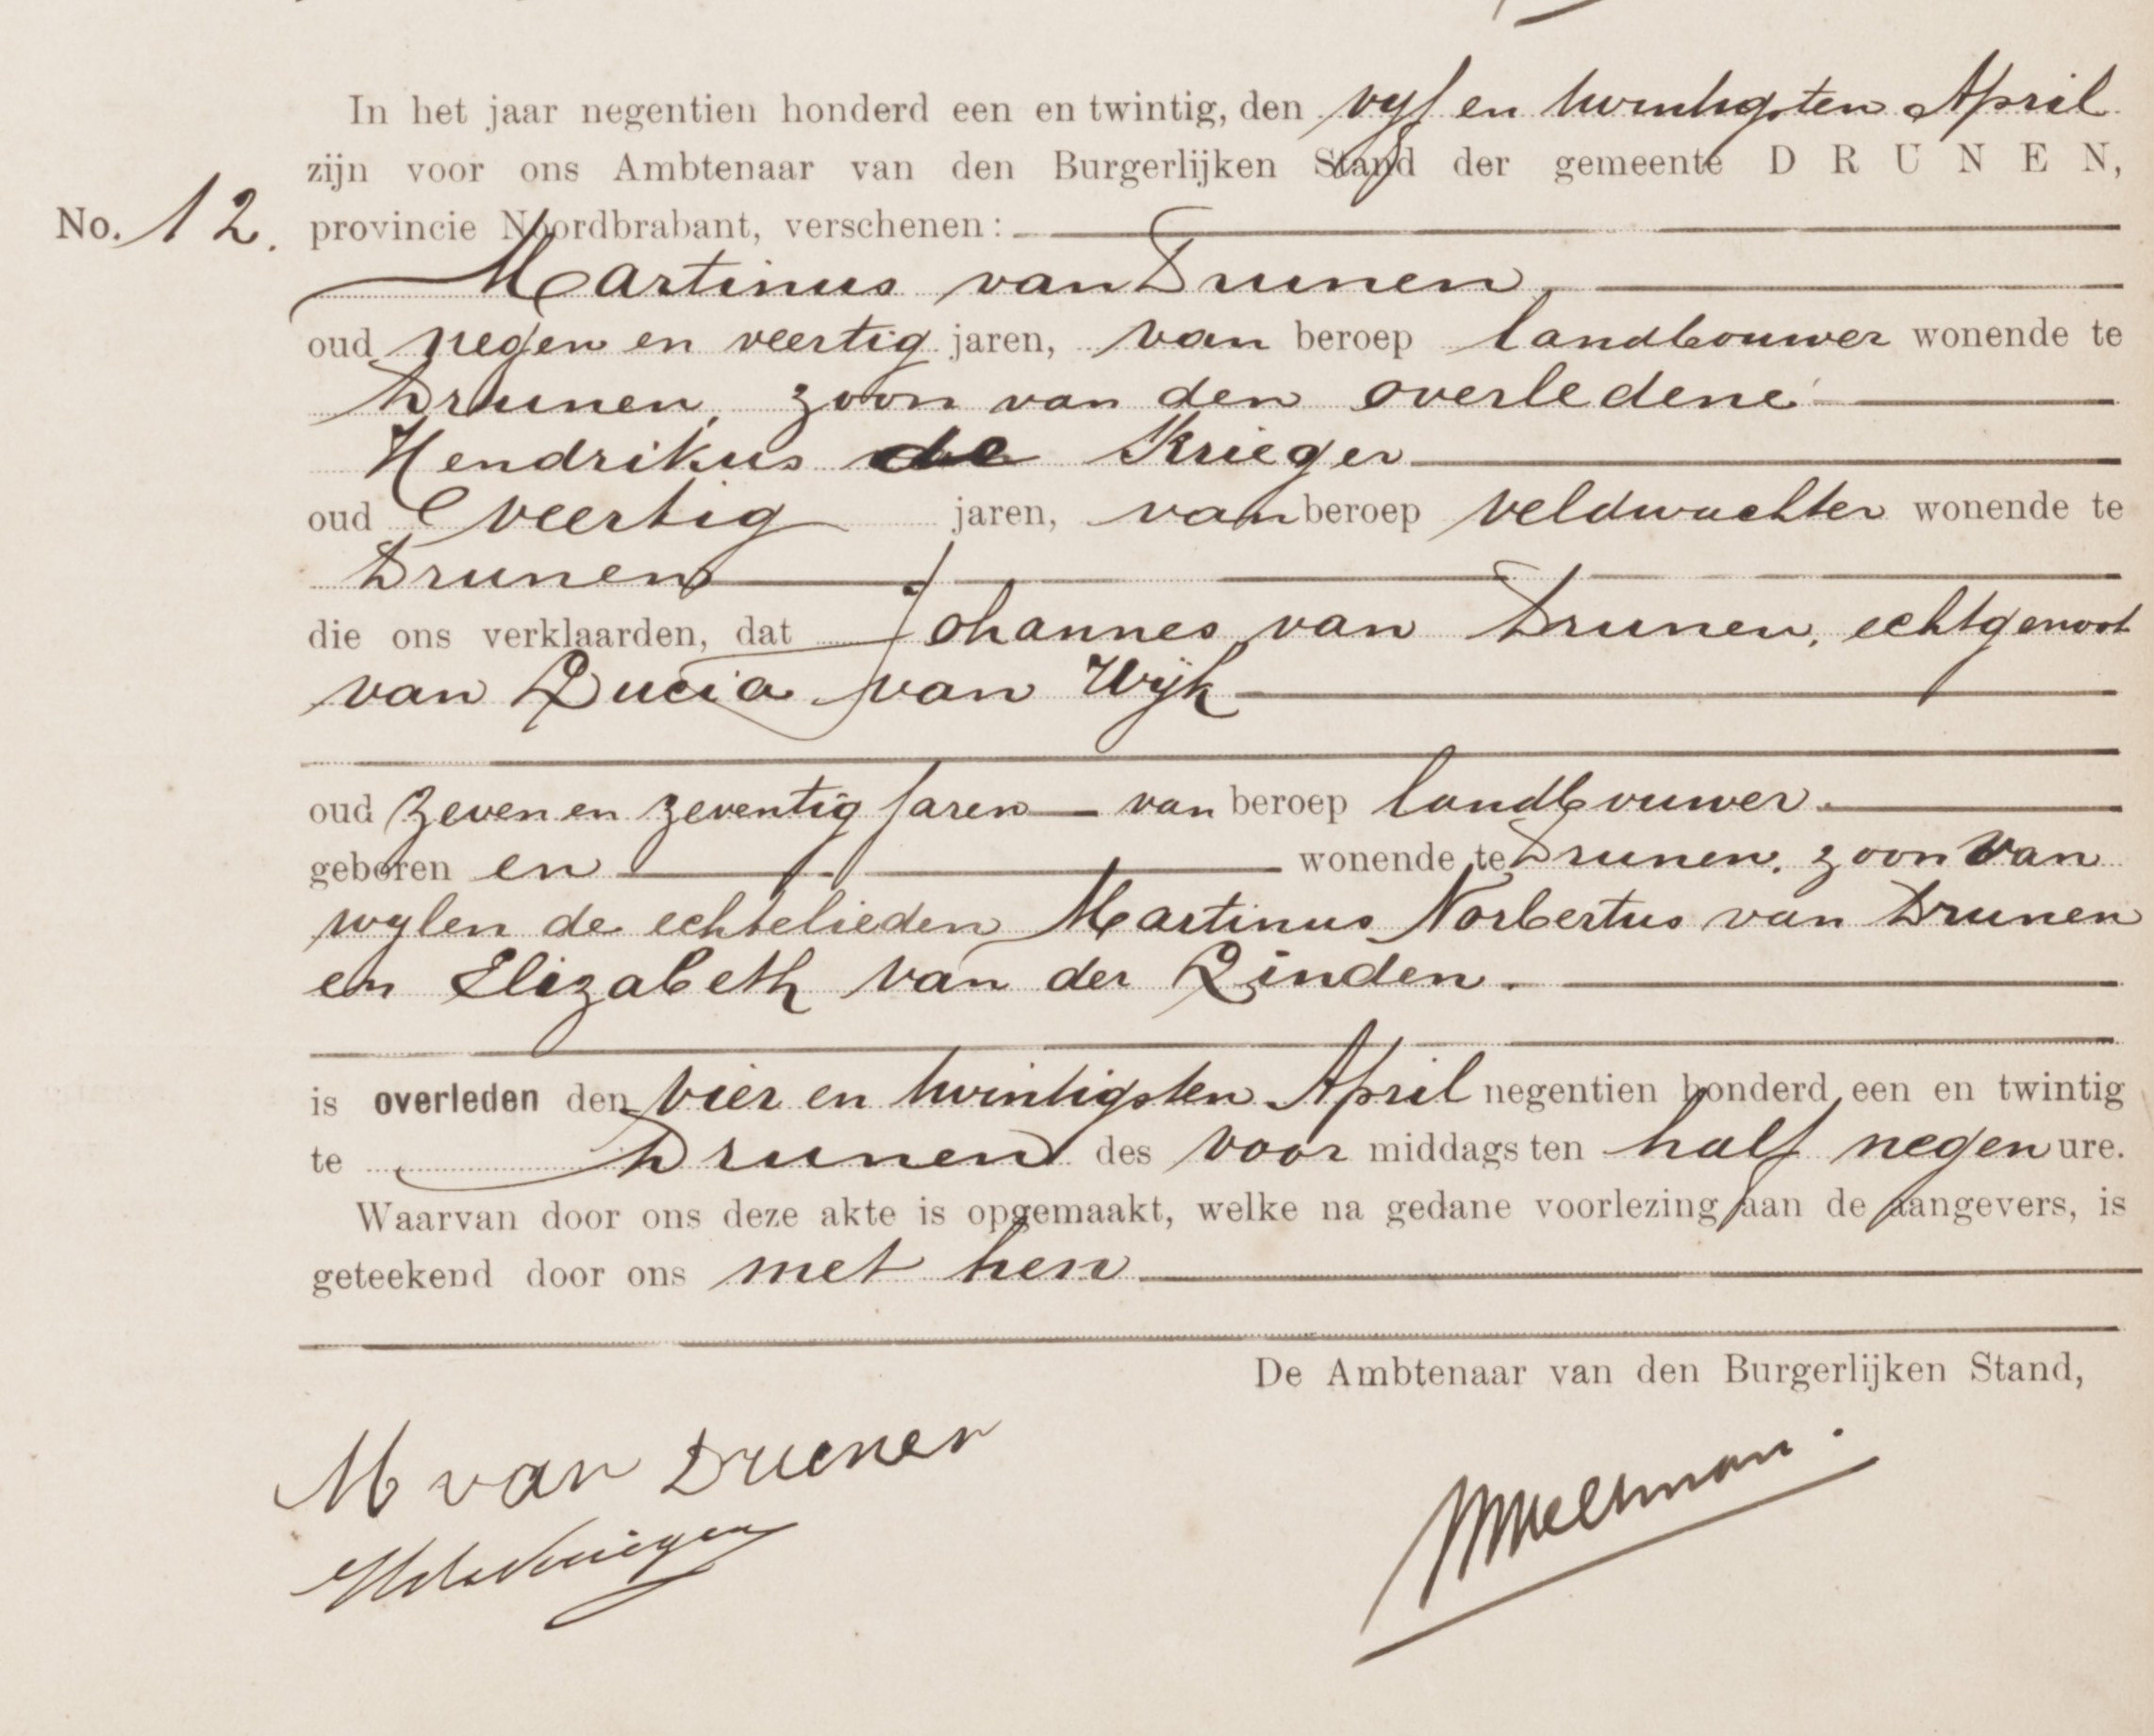 In het jaar negentien honderd een en twintig, den vyf en twintigsten April
zijn voor ons Ambtenaar van den Burgerlijken Stand der gemeente DRUNEN,
No. 12. provincie Noordbrabant, verschenen:
Martinus van Drunen
oud negen en veertig jaren, van beroep landbouwer wonende te
Drunen, zoon van den overledene
Hendrikus de Krieger
oud veertig jaren, van beroep veldwachter wonende te
Drunen
die ons verklaarden, dat Johannes van Drunen, echtgenoot
van Lucia van Wijk
oud zeven en zeventig jaren van beroep landbouwer.
geboren en wonende te Drunen, zoon van
wylen de echtelieden Martinus Norbertus van Drunen
en Elizabeth van der Linden.
is overleden den vier en twintigsten April negentien honderd een en twintig
te Drunen des voor middags ten half negen ure.
Waarvan door ons deze akte is opgemaakt, welke na gedane voorlezing aan de aangevers, is
geteekend door ons met hen
De Ambtenaar van den Burgerlijken Stand,
M van Drunen